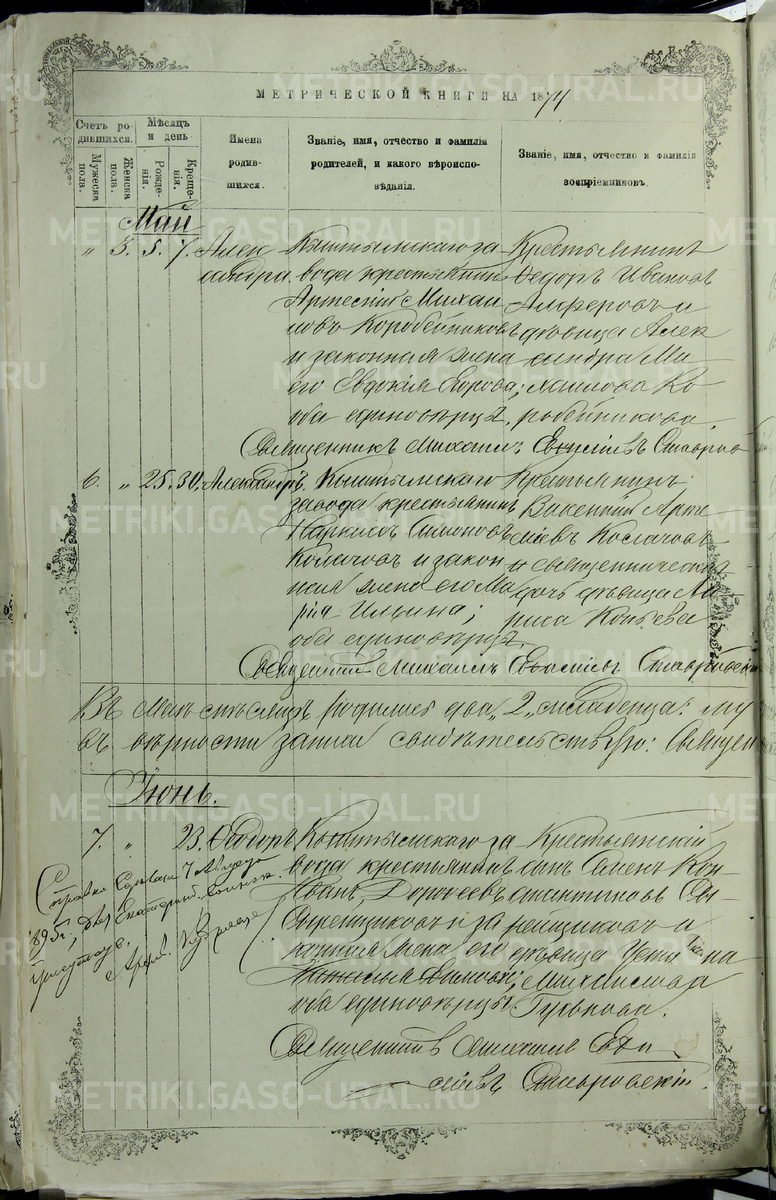 МЕТРИЧЕСКОЙ КНИГИ НА 1874
Счетъ ро-
дившихся.
Мужеска
пола.
Женска
пола.
Мѣсяцъ
и день
Рожде-
нія.
Креще-
нія.
Имена
родив-
шихся.
Званіе, имя, отчество и фамилія
родителей, и какого вѣроиспо-
вѣданія.
Званіе, имя, отчество и фамилія
воспріемниковъ.
Май
" 3. 5. 7. Алек
сандра.
Кыштымскаго за
вода крестьянинъ
Артемій Михаи
ловъ Коробейниковъ
и законная жена
его Евдокія Егорова;
оба единовѣрцы.
Крестьянинъ
Ѳедоръ Ивановъ
Алферовъ и
дѣвица Алек
сандра Ми
хаилова Ко
робейникова.
Священникъ Михаилъ Ставров
6. " 25. 30. Александръ.
Кыштымскаго
завода крестьянинъ
Наркисъ Симоновъ
и закон
ная жена его Ма
рія Ильина;
оба единовѣрцы.
Крестьянинъ
Викентій Арте
мьевъ
и священническая
дочь дѣвица Ма
Священникъ Михаилъ Ставровскій
Въ маѣ мѣсяцѣ родилось два "2" младенца: му
въ вѣрности записи свидѣтельствую: Священ
Іюнь.
7. " 23. Ѳеодоръ
Кыштымскаго за
вода крестьянинъ
Иванъ Дороѳеевъ
Сырейщиковъ и за
конная жена его
оба единовѣрцы
Крестьянскій
сынъ Семенъ Кон
стантиновъ Сы
рейщиковъ и
дѣвица Усти на
Михаилова
Гурькова.
Священникъ Михаилъ
Ставровскій.
Справка
7 Августа
1895 г.
METRIKI.GASO-URAL.RU